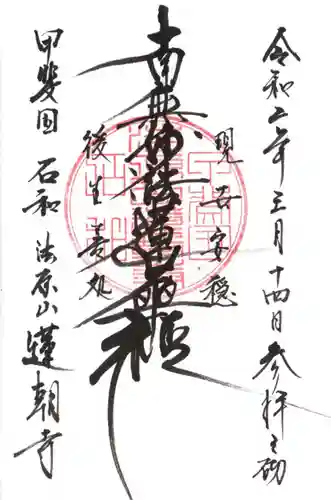 令和二年三月十四日 参拝之砌
現世安穏
南無妙法蓮華経
後生善処
甲斐国 石和 法原山 蓮朝寺